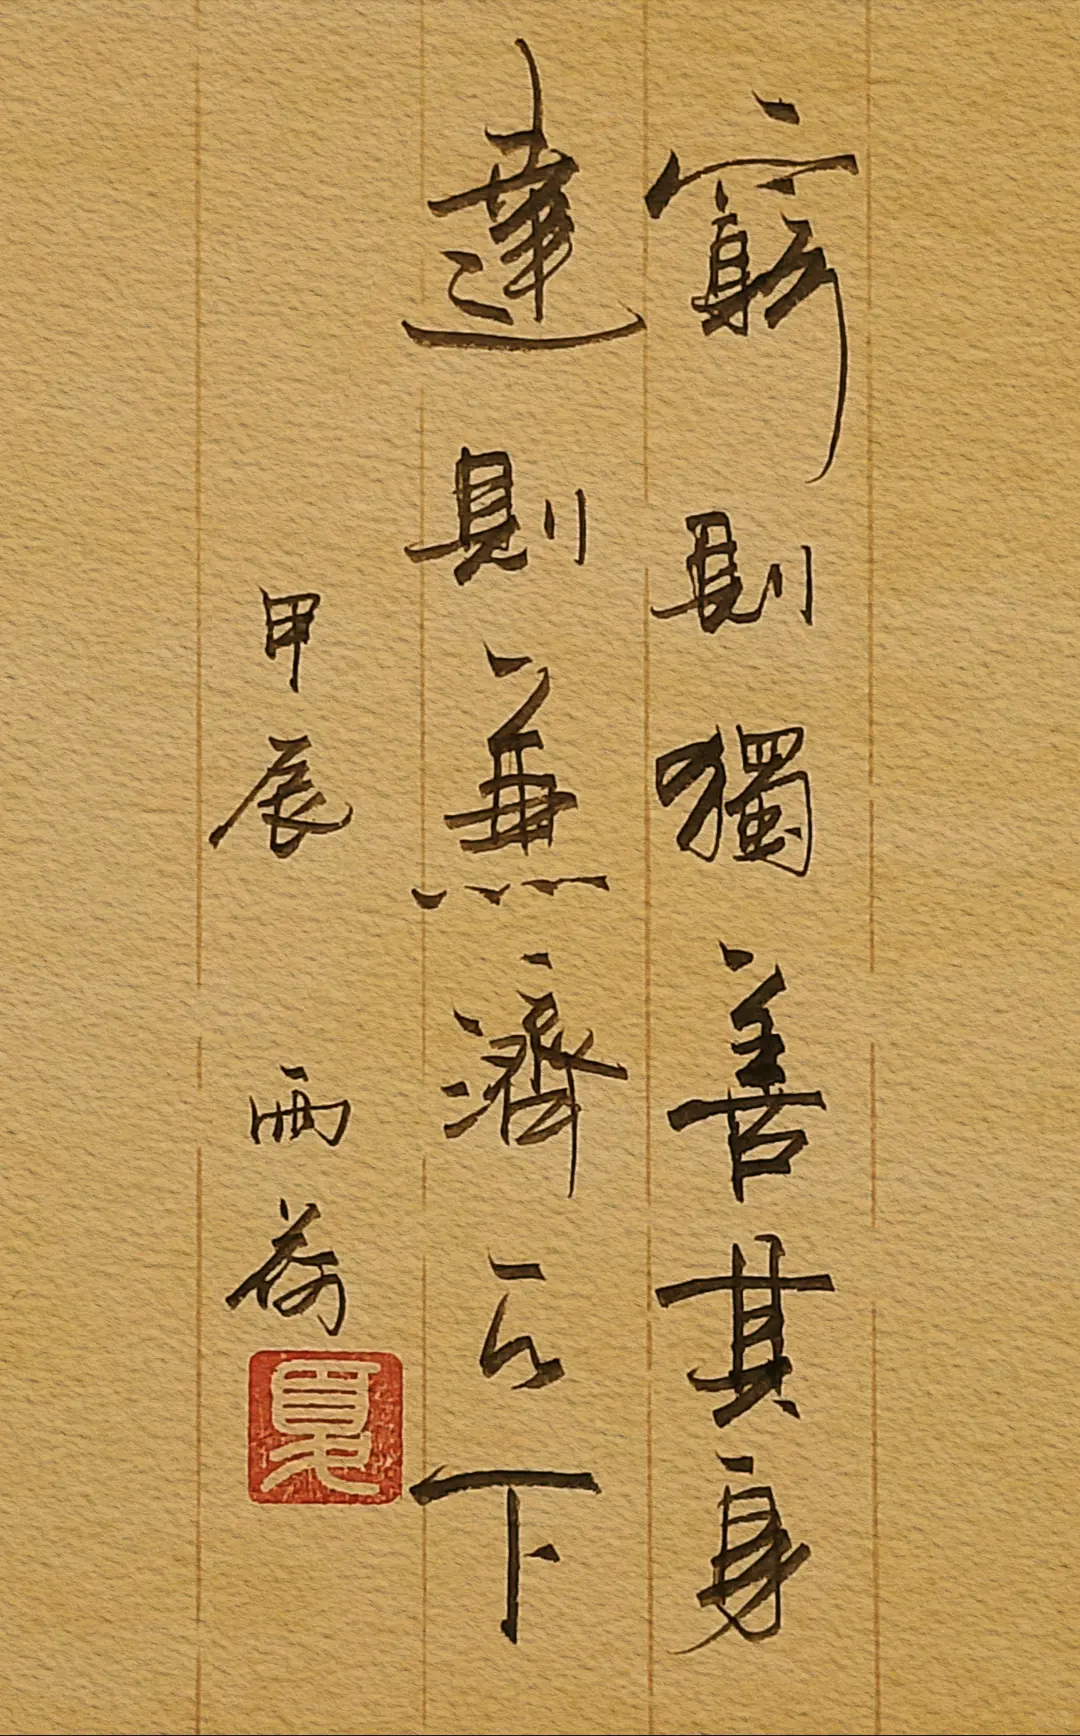 窮則獨善其身
達則兼濟天下
甲辰 雨荷
夏